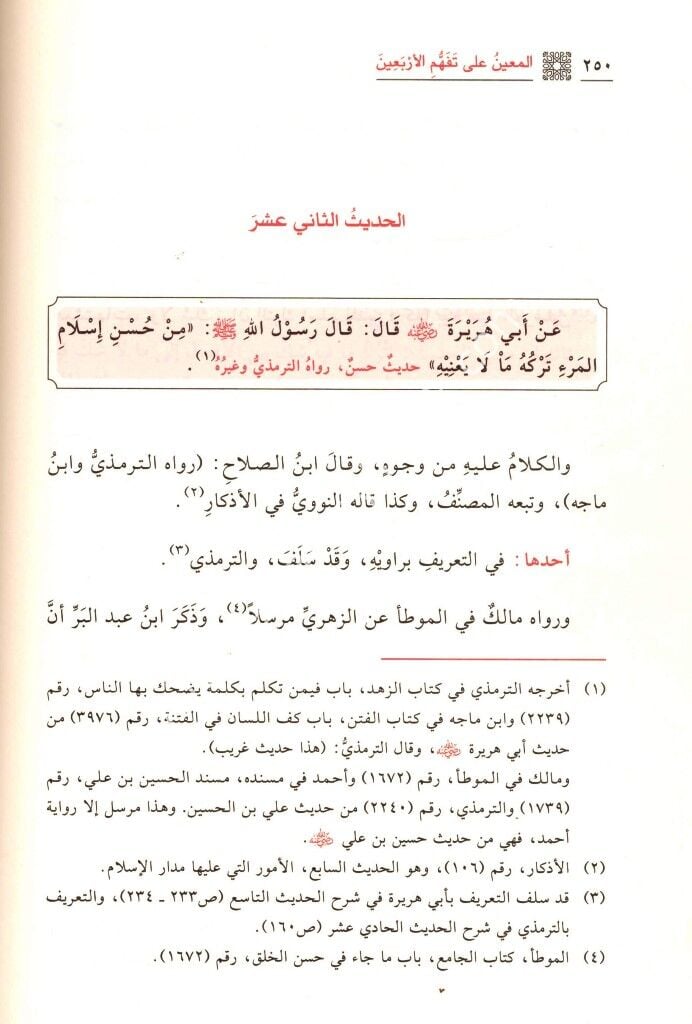 ٢٥٠ المعينُ على تَفَهُّمِ الأرْبَعِينَ
الحديثُ الثاني عشرَ
عَنْ أَبي هُرَيْرَةَ رضي الله عنه قَالَ: قَالَ رَسُوْلُ اللهِ ﷺ: «مِنْ حُسْنِ إِسْلَامِ
المَرْءِ تَرْكُهُ مَاْ لَا يَعْنِيْهِ» حديثٌ حسنٌ، رواهُ الترمذيُّ وغيرُهُ(١).
والكلامُ عليهِ من وجوهٍ، وقالَ ابنُ الصلاحِ: (رواه الترمذيُّ وابنُ
ماجه)، وتبعه المصنِّفُ، وكذا قاله النوويُّ في الأذكارِ(٢).
أحدها: في التعريفِ براويْهِ، وَقَدْ سَلَفَ، والترمذي(٣).
ورواه مالكٌ في الموطأ عن الزهريِّ مرسلاً(٤)، وَذَكَرَ ابنُ عبد البَرِّ أنَّ
(١) أخرجه الترمذي في كتاب الزهد، باب فيمن تكلم بكلمة يضحك بها الناس، رقم
(٢٢٣٩) وابن ماجه في كتاب الفتن، باب كف اللسان في الفتنة، رقم (٣٩٧٦) من
حديث أبي هريرة رضي الله عنه، وقال الترمذيُّ: (هذا حديث غريب).
ومالك في الموطأ، رقم (١٦٧٢) وأحمد في مسنده، مسند الحسين بن علي، رقم
(١٧٣٩) والترمذي، رقم (٢٢٤٠) من حديث علي بن الحسين. وهذا مرسل إلا رواية
أحمد، فهي من حديث حسين بن علي رضي الله عنه.
(٢) الأذكار، رقم (١٠٦)، وهو الحديث السابع، الأمور التي عليها مدار الإسلام.
(٣) قد سلف التعريف بأبي هريرة في شرح الحديث التاسع (ص٢٣٣ ـ ٢٣٤)، والتعريف
بالترمذي في شرح الحديث الحادي عشر (ص١٦٠).
(٤) الموطأ، كتاب الجامع، باب ما جاء في حسن الخلق، رقم (١٦٧٢).